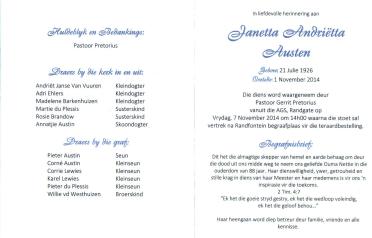 Huldeblyk en Bedankings:
Pastoor Pretorius
Draers by die kerk in en uit:
Andriët Janse Van Vuuren Kleindogter
Adri Ehlers Kleindogter
Madelene Barkenhuizen Kleindogter
Martie du Plessis Susterskind
Rosie Brandow Susterskind
Annatjie Austin Skoondogter
Draers by die graf:
Pieter Austin Seun
Corné Austin Kleinseun
Corrie Lewies Kleinseun
Karel Lewies Kleinseun
Pieter du Plessis Kleinseun
Willie vd Westhuizen Broerskind
In liefdevolle herinnering aan
Janetta Andriëtta
Austen
Gebore: 21 Julie 1926
Oorlede: 1 November 2014
Die diens word waargeneem deur
Pastoor Gerrit Pretorius
vanuit die AGS, Randgate op
Vrydag, 7 November 2014 om 14h00 waarna die stoet sal
vertrek na Randfontein begrafplaas vir die teraardbestelling.
Begrafnisbrief:
Dit het die almagtige skepper van hemel en aarde behaag om deur
die dood uit ons midde weg te neem ons geliefde Ouma Nettie in die
ouderdom van 88 jaar. Haar dienswilligheid, ywer, getrouheid en
stille krag in diens van haar Meester en haar medemens is vir ons 'n
inspirasie vir die toekoms.
2 Tim. 4:7
"Ek het die goeie stryd gestry, ek het die wedloop voleindig,
ek het die geloof behou..."
Haar heengaan word diep betreur deur familie, vriende en alle
kennisse.